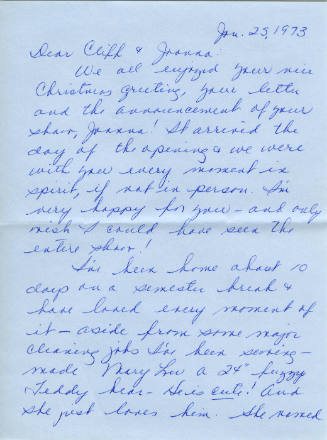 Jan. 23, 1973
Dear Cliff & Joanna:
We all enjoyed your nice
Christmas greeting, your letter
and the announcement of your
show, Joanna! It arrived the
day of the opening & we were
with you every moment in
spirit, if not in person. I'm
very happy for you - and only
wish I could have seen the
entire show!
I've been home about 10
days on a semester break &
have loved every moment of
it - aside from some major
cleaning jobs I've been sewing -
made Mary Lou a 24" fuzzy
Teddy bear - He is cute! And
she just loves him. She named